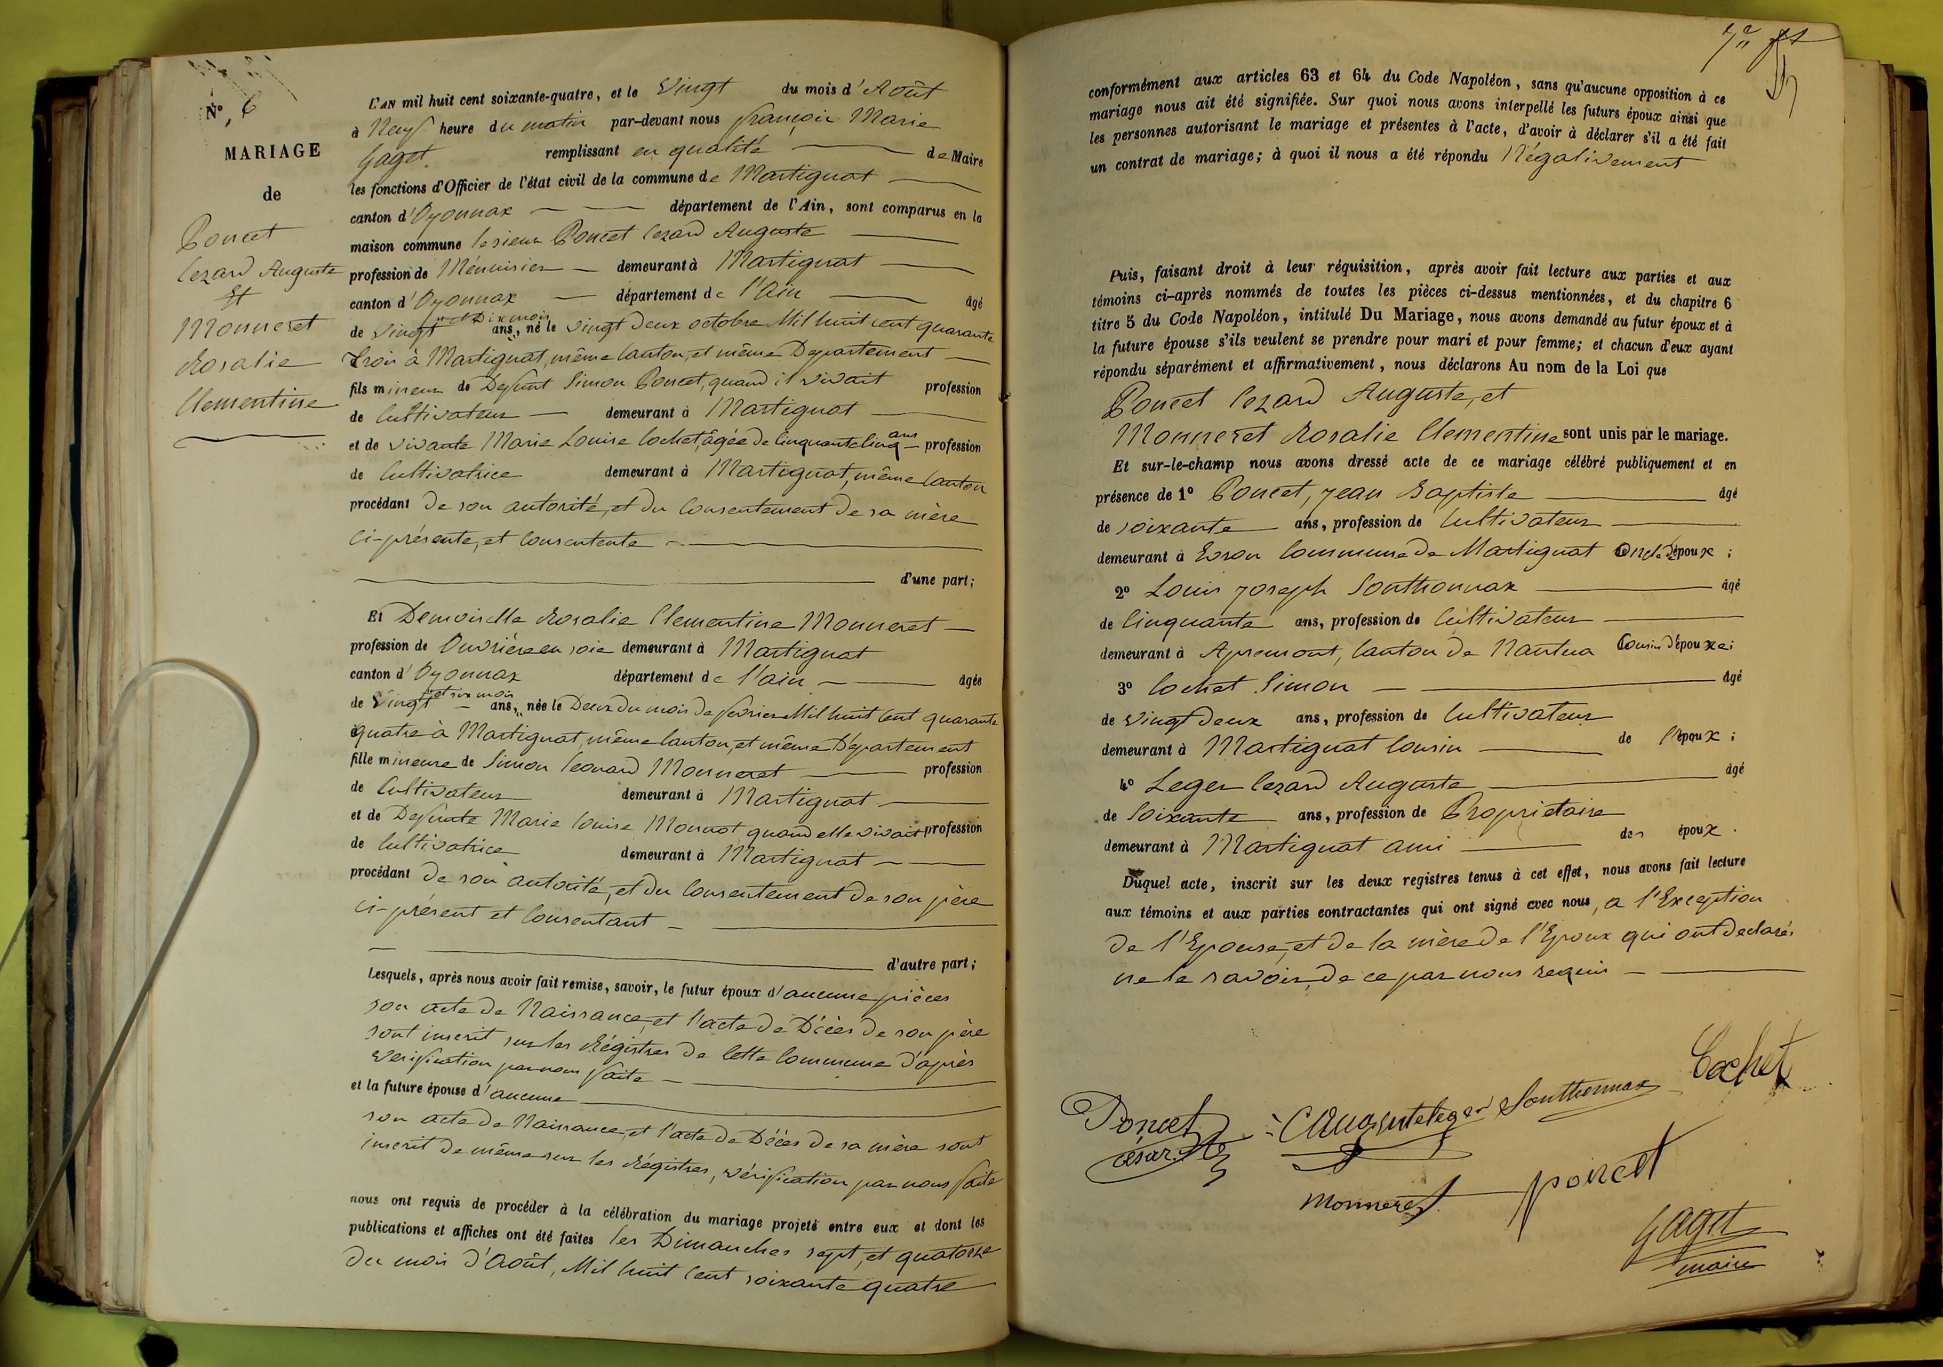 N°, 6
MARIAGE
de
Poncet
Cezard Auguste
Et
Monneret
Rosalie
Clementine
L'AN mil huit cent soixante-quatre, et le Vingt du mois d'Août
à Neuf heure du matin par-devant nous françois Marie
Gaget remplissant en qualité de Maire
les fonctions d'Officier de l'état civil de la commune de Martignat
canton d'Oyonnax département de l'Ain, sont comparus en la
maison commune le sieur Poncet Cezard Auguste
profession de Ménuisier demeurant à Martignat
canton d'Oyonnax département de l'Ain âgé
et Dix mois
de Vingt ans, né le vingt Deux octobre Mil huit cent quarante
Trois à Martignat, même Canton, et même Departement
fils mineur de Defunt Simon Poncet, quand il vivait profession
de Cultivateur demeurant à Martignat
et de vivante Marie Louise Cochet, âgée de Cinquante Cinq ans profession
de Cultivatrice demeurant à Martignat, même Canton
procédant de son autorité, et du Consentement de sa mère
Ci-présente, et Consentente
d'une part;
Et Demoiselle Rosalie Clementine Monneret
profession de Ouvrière en soie demeurant à Martignat
canton d'Oyonnax département de l'ain âgée
et six mois
de Vingt ans, née le Deux du mois de fevrier Mil huit Cent quarante
quatre à Martignat, même Canton, et même Département
fille mineure de Simon Leonard Monneret profession
de Cultivateur demeurant à Martignat
et de Defunte Marie Louise Monnot quand elle vivait profession
de Cultivatrice demeurant à Martignat
procédant de son autorité, et du Consentement de son père
Ci-présent et Consentant
d'autre part;
Lesquels, après nous avoir fait remise, savoir, le futur époux d'aucune pièces
son acte de Naissance, et l'acte de Décès de son père
sont inscrit sur les Régistres de Cette Commune d'après
verification par nous faite
et la future épouse d'aucune
son acte de Naissance, et l'acte de Décès de sa mère sont
inscrit de même sur les Régistres, vérification par nous faite
nous ont requis de procéder à la célébration du mariage projeté entre eux et dont les
publications et affiches ont été faites les Dimanches sept, et quatorze
du mois d'Août, Mil huit Cent soixante quatre
conformément aux articles 63 et 64 du Code Napoléon, sans qu'aucune opposition à ce
mariage nous ait été signifiée. Sur quoi nous avons interpellé les futurs époux ainsi que
les personnes autorisant le mariage et présentes à l'acte, d'avoir à déclarer s'il a été fait
un contrat de mariage; à quoi il nous a été répondu Négativement
Puis, faisant droit à leur réquisition, après avoir fait lecture aux parties et aux
témoins ci-après nommés de toutes les pièces ci-dessus mentionnées, et du chapitre 6
titre 5 du Code Napoléon, intitulé Du Mariage, nous avons demandé au futur époux et à
la future épouse s'ils veulent se prendre pour mari et pour femme; et chacun d'eux ayant
répondu séparément et affirmativement, nous déclarons Au nom de la Loi que
Poncet Cezard Auguste, et
Monneret Rosalie Clementine sont unis par le mariage.
Et sur-le-champ nous avons dressé acte de ce mariage célébré publiquement et en
présence de 1° Poncet, Jean Baptiste âgé
de soixante ans, profession de Cultivateur
demeurant à Evron Commune de Martignat Oncle d'époux;
2° Louis Joseph Sonthonnax âgé
de Cinquante ans, profession de Cultivateur
demeurant à Apremont, Canton de Nantua Cousin d'épouxe;
3° Cochet Simon âgé
de vingt deux ans, profession de Cultivateur
demeurant à Martignat Cousin de l'époux;
4° Leger Cezard Auguste âgé
de Soixante ans, profession de Propriétaire
demeurant à Martignat ami des époux.
Duquel acte, inscrit sur les deux registres tenus à cet effet, nous avons fait lecture
aux témoins et aux parties contractantes qui ont signé avec nous, a l'Exception
de l'Epouse, et de la mère de l'Epoux qui ont declarés
ne le savoir, de ce par nous requis
Cochet
Poncet
César. Ate
CAuguste leger Sonthonnax
Monneret poncet
Gaget
maire